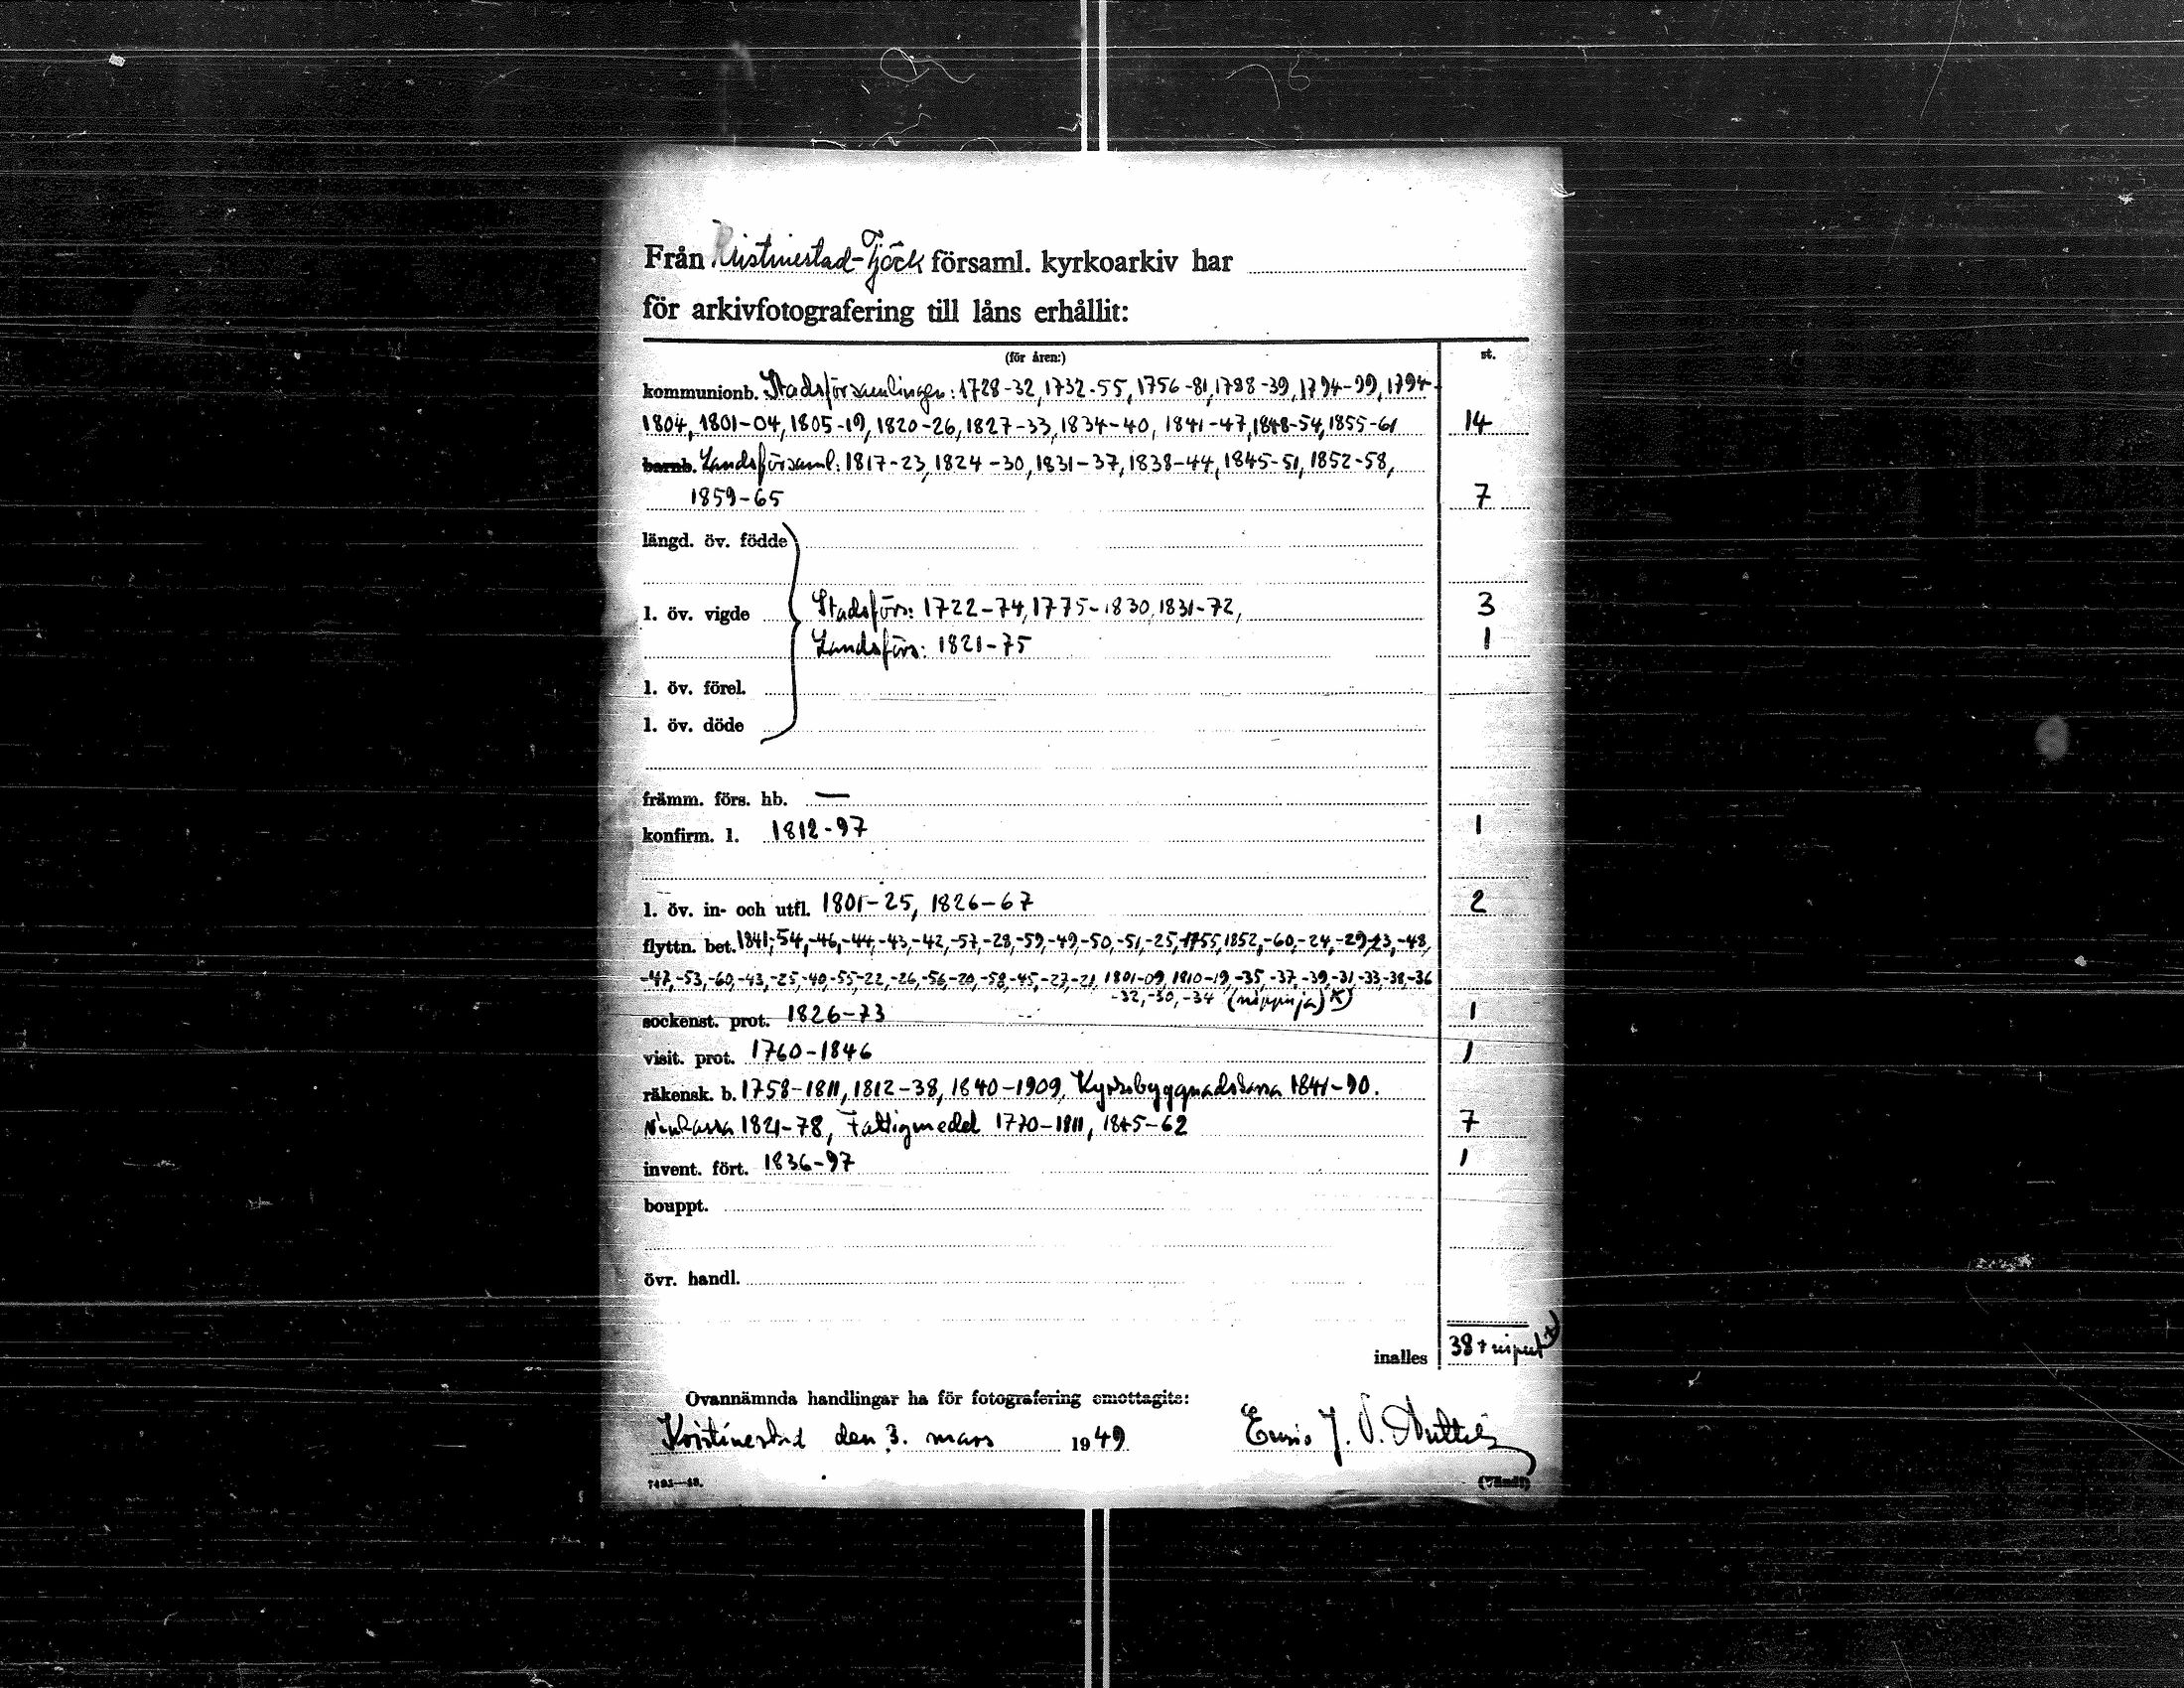 Från Kristinestad-Tjöck församl. kyrkoarkiv har
för arkivfotografering till låns erhållit:
(för åren:) st.
kommunionb. Stadsförsamlingen: 1728-32, 1732-55, 1756-81, 1788-39, 1794-99, 1794-
1804, 1801-04, 1805-19, 1820-26, 1827-33, 1834-40, 1841-47, 1848-54, 1855-61 14
barnb. Landsförsaml: 1817-23, 1824-30, 1831-37, 1838-44, 1845-51, 1852-58,
1859-65 7
längd. öv. födde
l. öv. vigde Stadsförs: 1722-74, 1775-1830, 1831-72, 3
Landsförs: 1821-75 1
l. öv. förel.
l. öv. döde
främm. förs. hb. —
konfirm. l. 1812-97 1
l. öv. in- och utfl. 1801-25, 1826-67 2
flyttn. bet. 1841, -54, -46, -44, -43, -42, -57, -28, -59, -49, -50, -51, -25, 1755, 1852, -60, -24, -29, -23, -48,
-47, -53, -60, -43, -25, -40, -55, -22, -26, -56, -20, -58, -45, -27, -21, 1801-09, 1810-19, -35, -37, -39, -31, -33, -38, -36
-32, -30, -34 (nippuja) x)
sockenst. prot. 1826-73 1
visit. prot. 1760-1846 1
räkensk. b. 1758-1811, 1812-38, 1840-1909, Kyrkobyggnadskassa 1841-90.
Vinkassa 1821-78, Fattigmedel 1770-1811, 1845-62 7
invent. fört. 1836-97 1
bouppt.
övr. handl.
inalles 38 + niput x)
Ovannämnda handlingar ha för fotografering emottagits:
Kristinestad den 3. mars 1949 J.
(Vänd!)